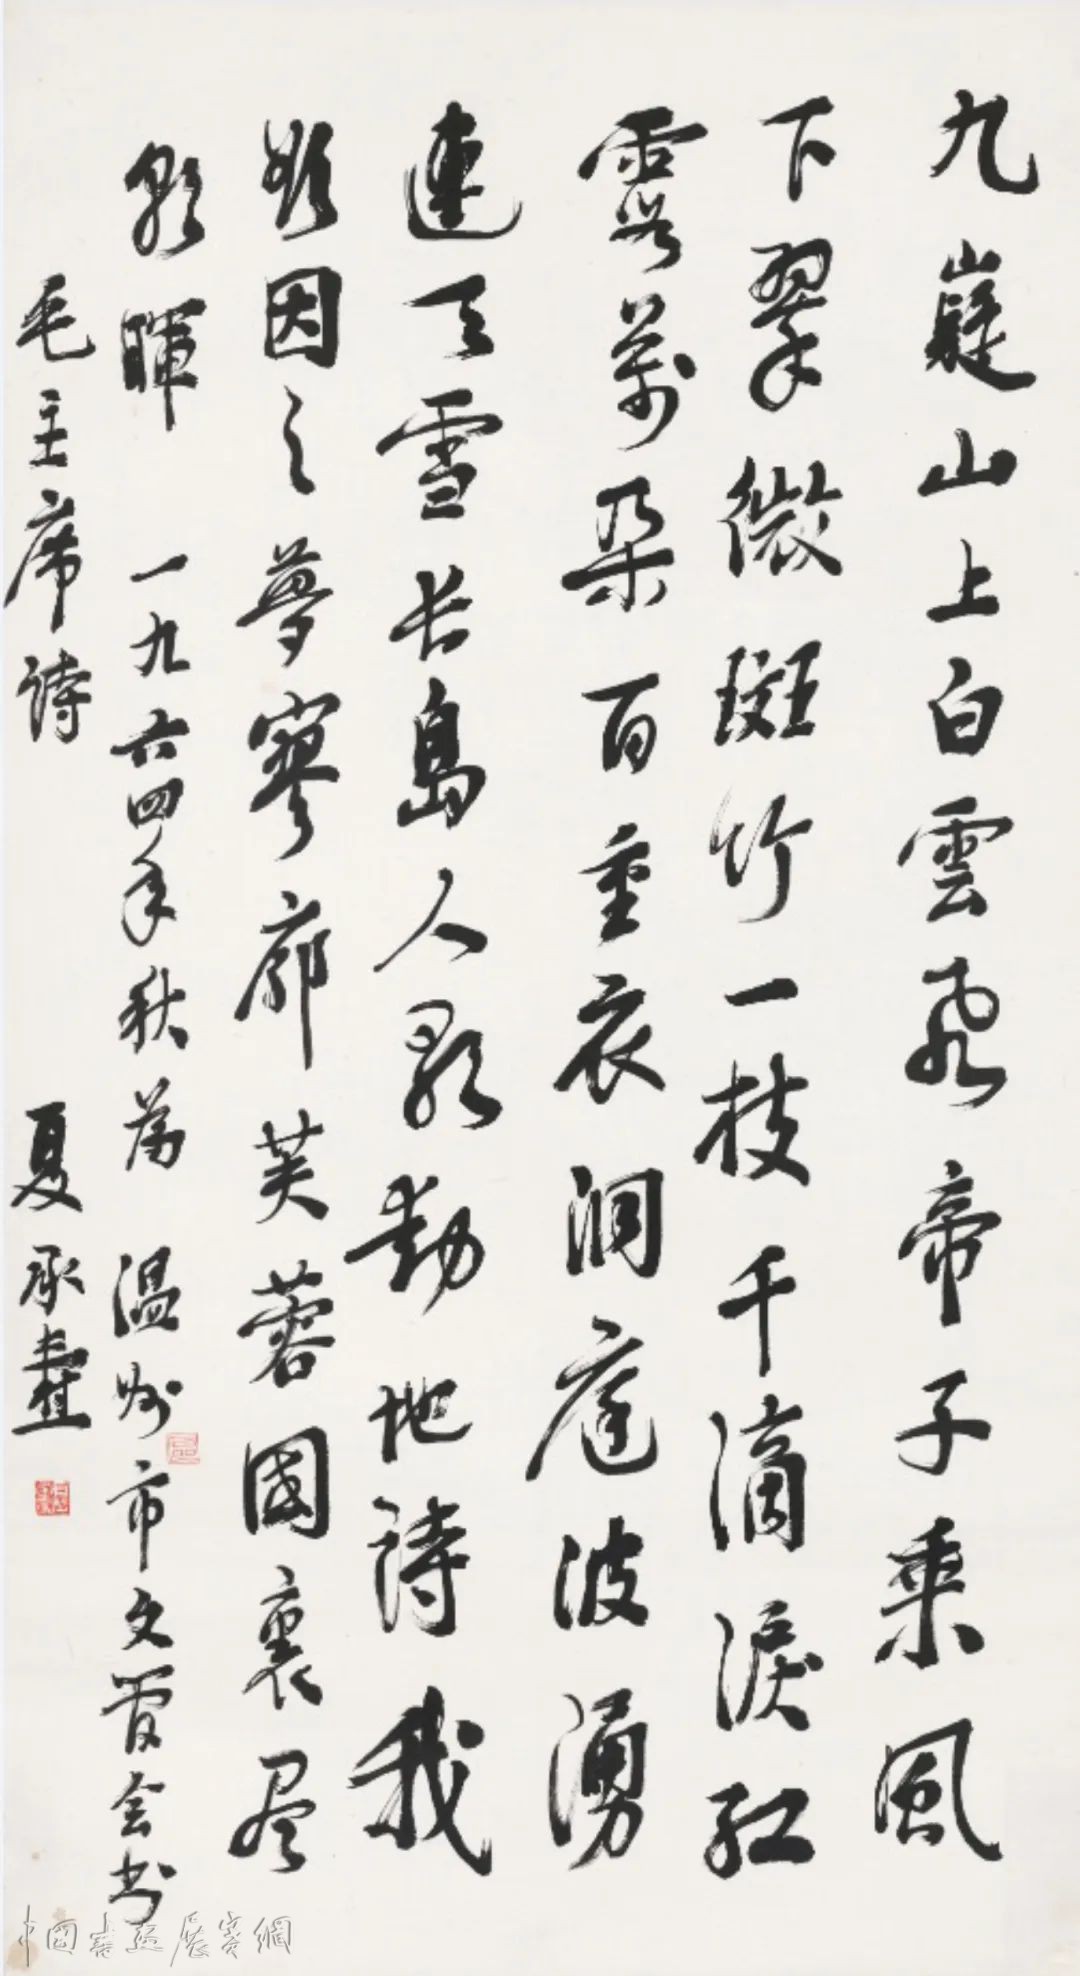 九嶷山上白雲飛帝子乘風
下翠微斑竹一枝千滴淚紅
霞萬朶百重衣洞庭波湧
連天雪長島人歌動地詩我
欲因之夢寥廓芙蓉國裏尽
朝暉 一九六四年秋為温州市文管会书
毛主席詩 夏承燾
中國書法展賽網